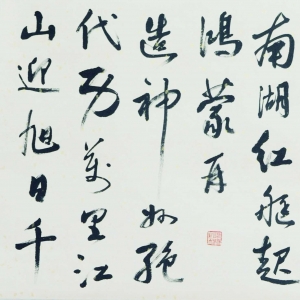 南湖红艇起
鸿蒙再
造神州绝
代功万里江
山迎旭日千